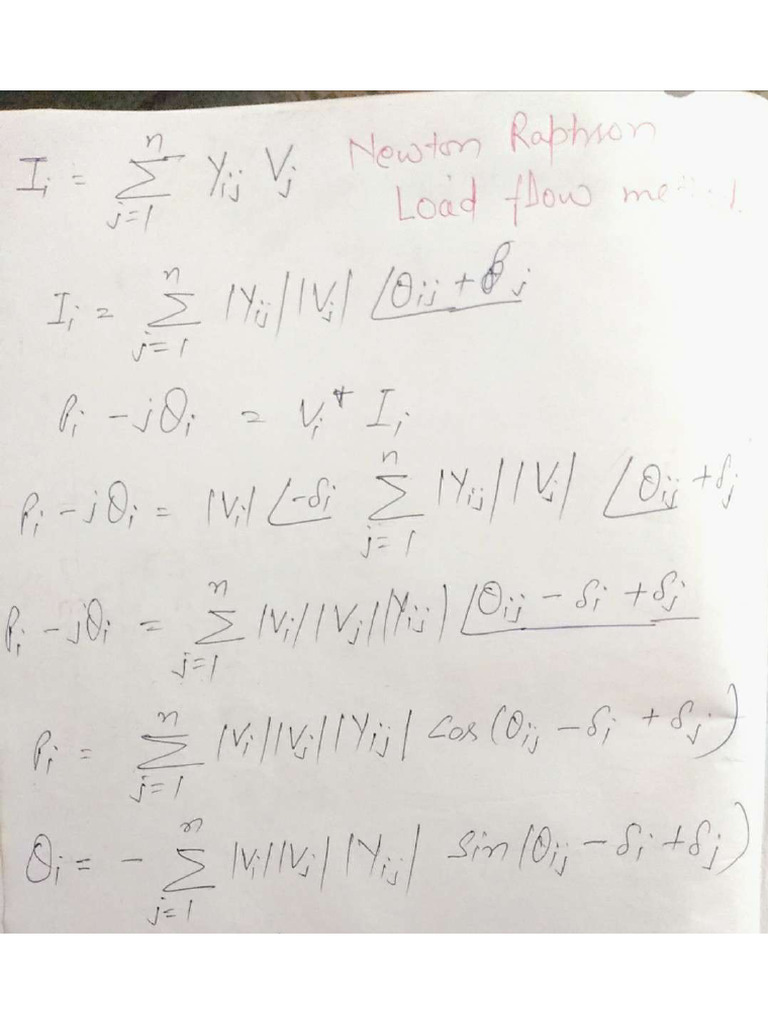 I_i = ∑_{j=1}^{n} Y_ij V_j Newton Raphson
Load flow
I_i = ∑_{j=1}^{n} |Y_ij| |V_j| ∠θ_ij + δ_j
P_i - jQ_i = V_i* I_i
P_i - jQ_i = |V_i| ∠-δ_i ∑_{j=1}^{n} |Y_ij| |V_j| ∠θ_ij + δ_j
P_i - jQ_i = ∑_{j=1}^{n} |V_i| |V_j| |Y_ij| ∠θ_ij - δ_i + δ_j
P_i = ∑_{j=1}^{n} |V_i| |V_j| |Y_ij| cos(θ_ij - δ_i + δ_j)
Q_i = - ∑_{j=1}^{n} |V_i| |V_j| |Y_ij| sin(θ_ij - δ_i + δ_j)